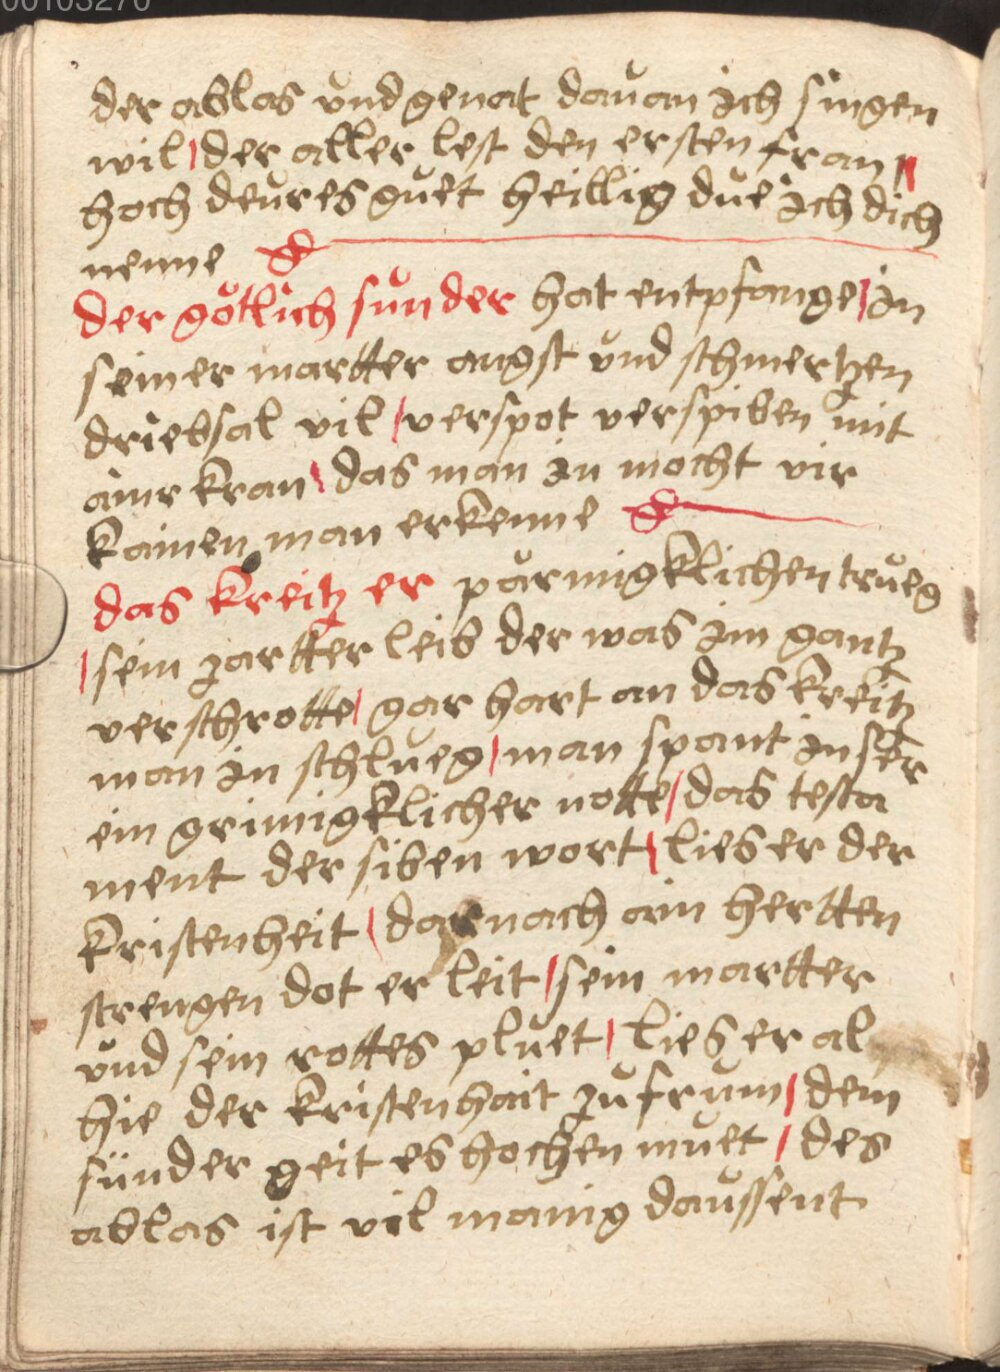 00103270
der ablas vnd genat dauan ich singen
wil / der aller lest den ersten fran //
hoch deures guet heillig due ich dich
nenne
der götlich sun der hat entpfange / in
seiner martter angst vnd schmertzen
driebsal vil / verspot verspiben mit
ainr kran / das man in mocht vir
kainen man erkenne
das kreitz er parmigklichen trueg
/ sein zartter leib der was im gantz
verschrotte / gar hart an das kreitz
man in schlueg / man spant in ser
ein grimigklicher notte / das testa
ment der siben wort / lies er der
kristenheit / darnach ain hertten
strengen dot er leit / sein martter
vnd sein rottes pluet / lies er al
hie der kristenhait zu frum / dem
sünder geit es hochen muet / des
ablas ist vil manig daussent